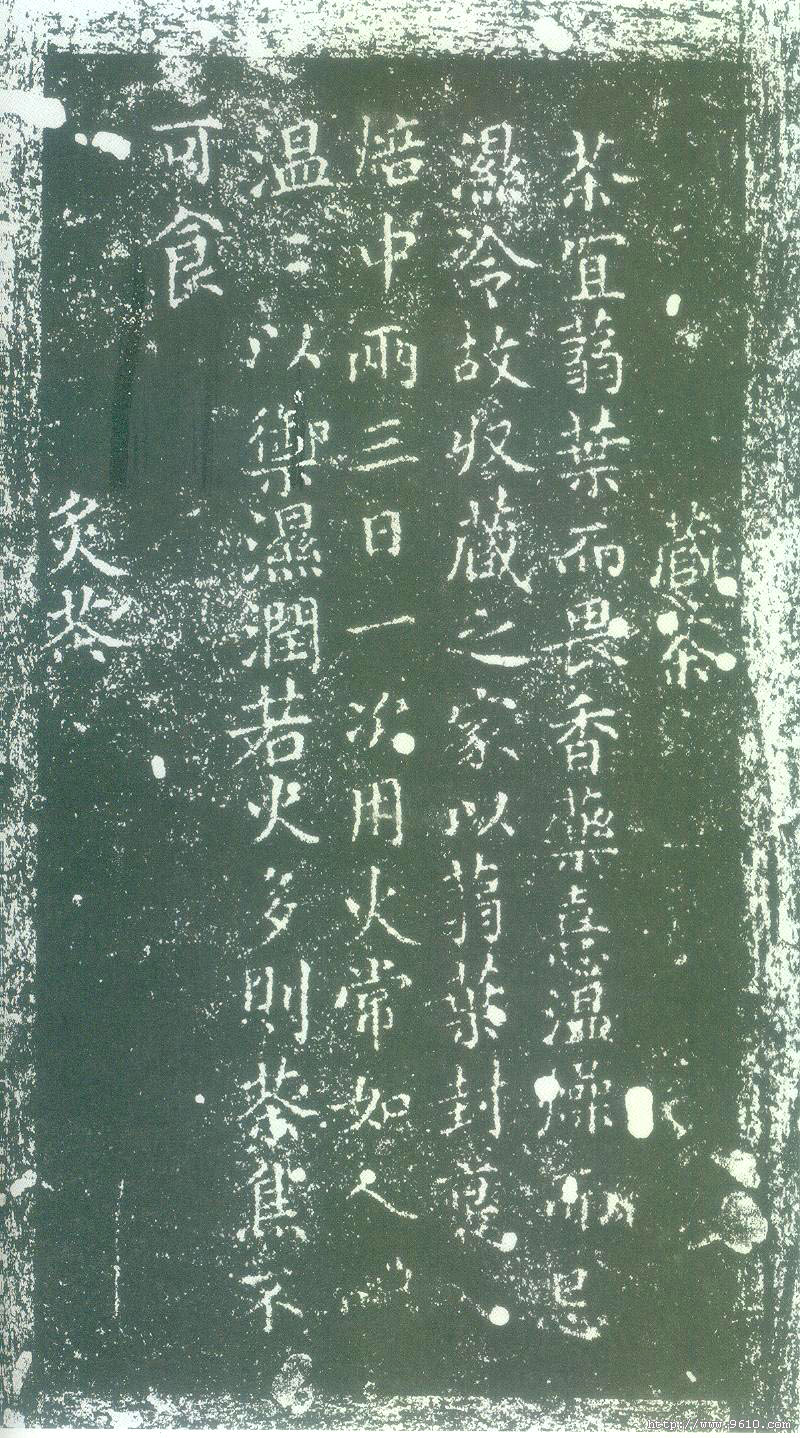 藏茶
茶宜蒻葉而畏香藥憙温燥而忌
濕冷故収藏之家以蒻葉封裹
焙中兩三日一次用火常如人
温〻以禦濕潤若火多則茶焦不
可食
炙茶
http://www.9610.com